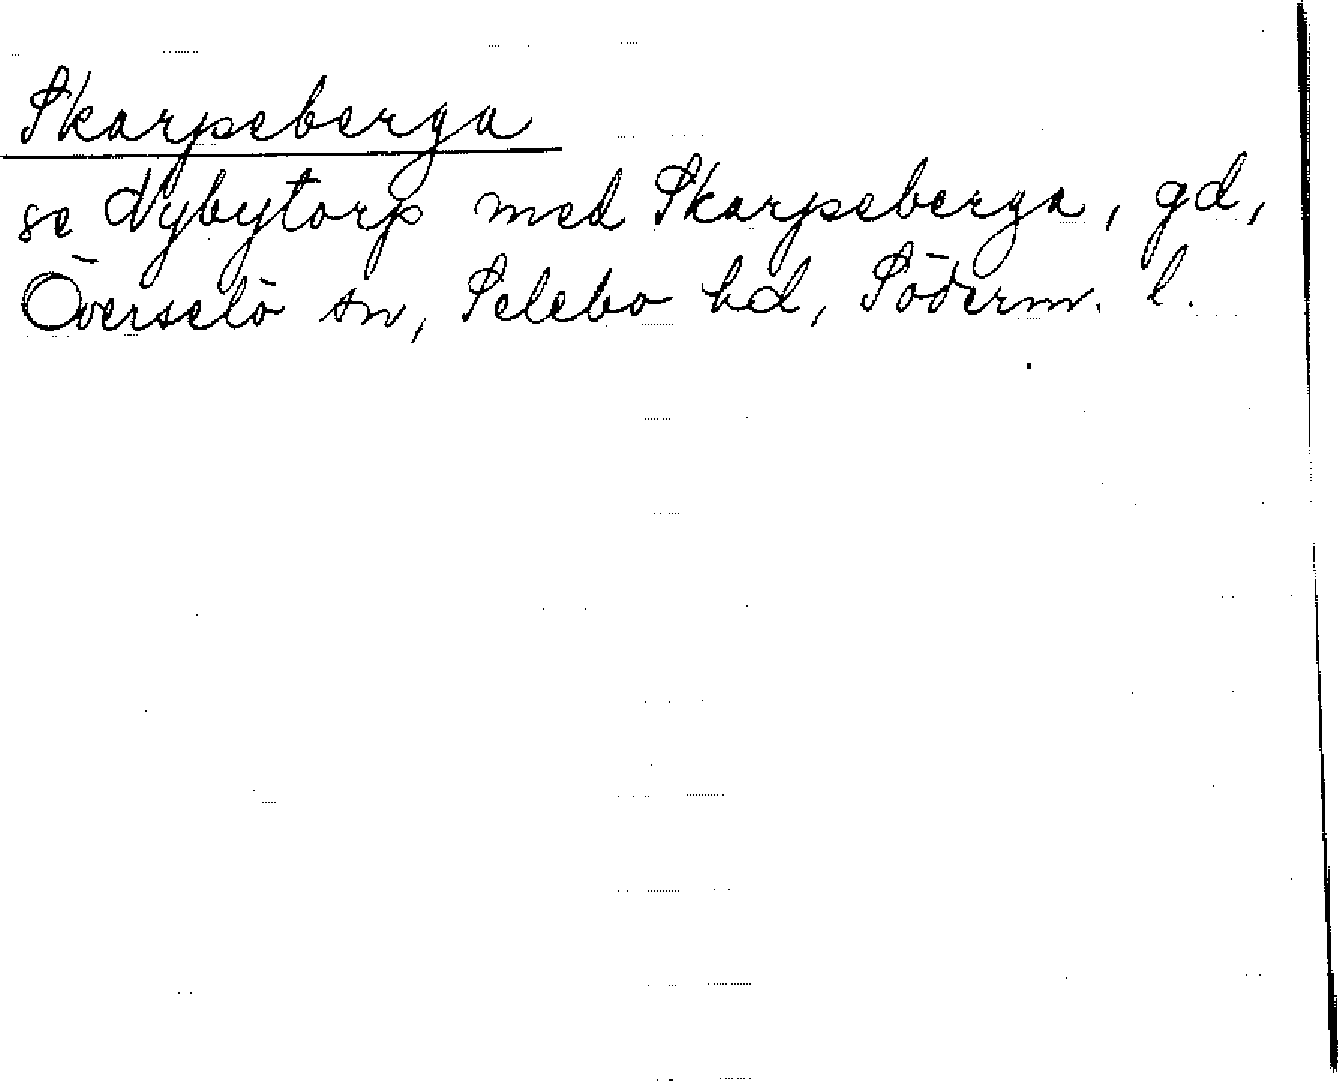 Skarpeberga
se Nybytorp med Skarpeberga, gd,
Överselö sn, Selebo hd, Söderm. l.